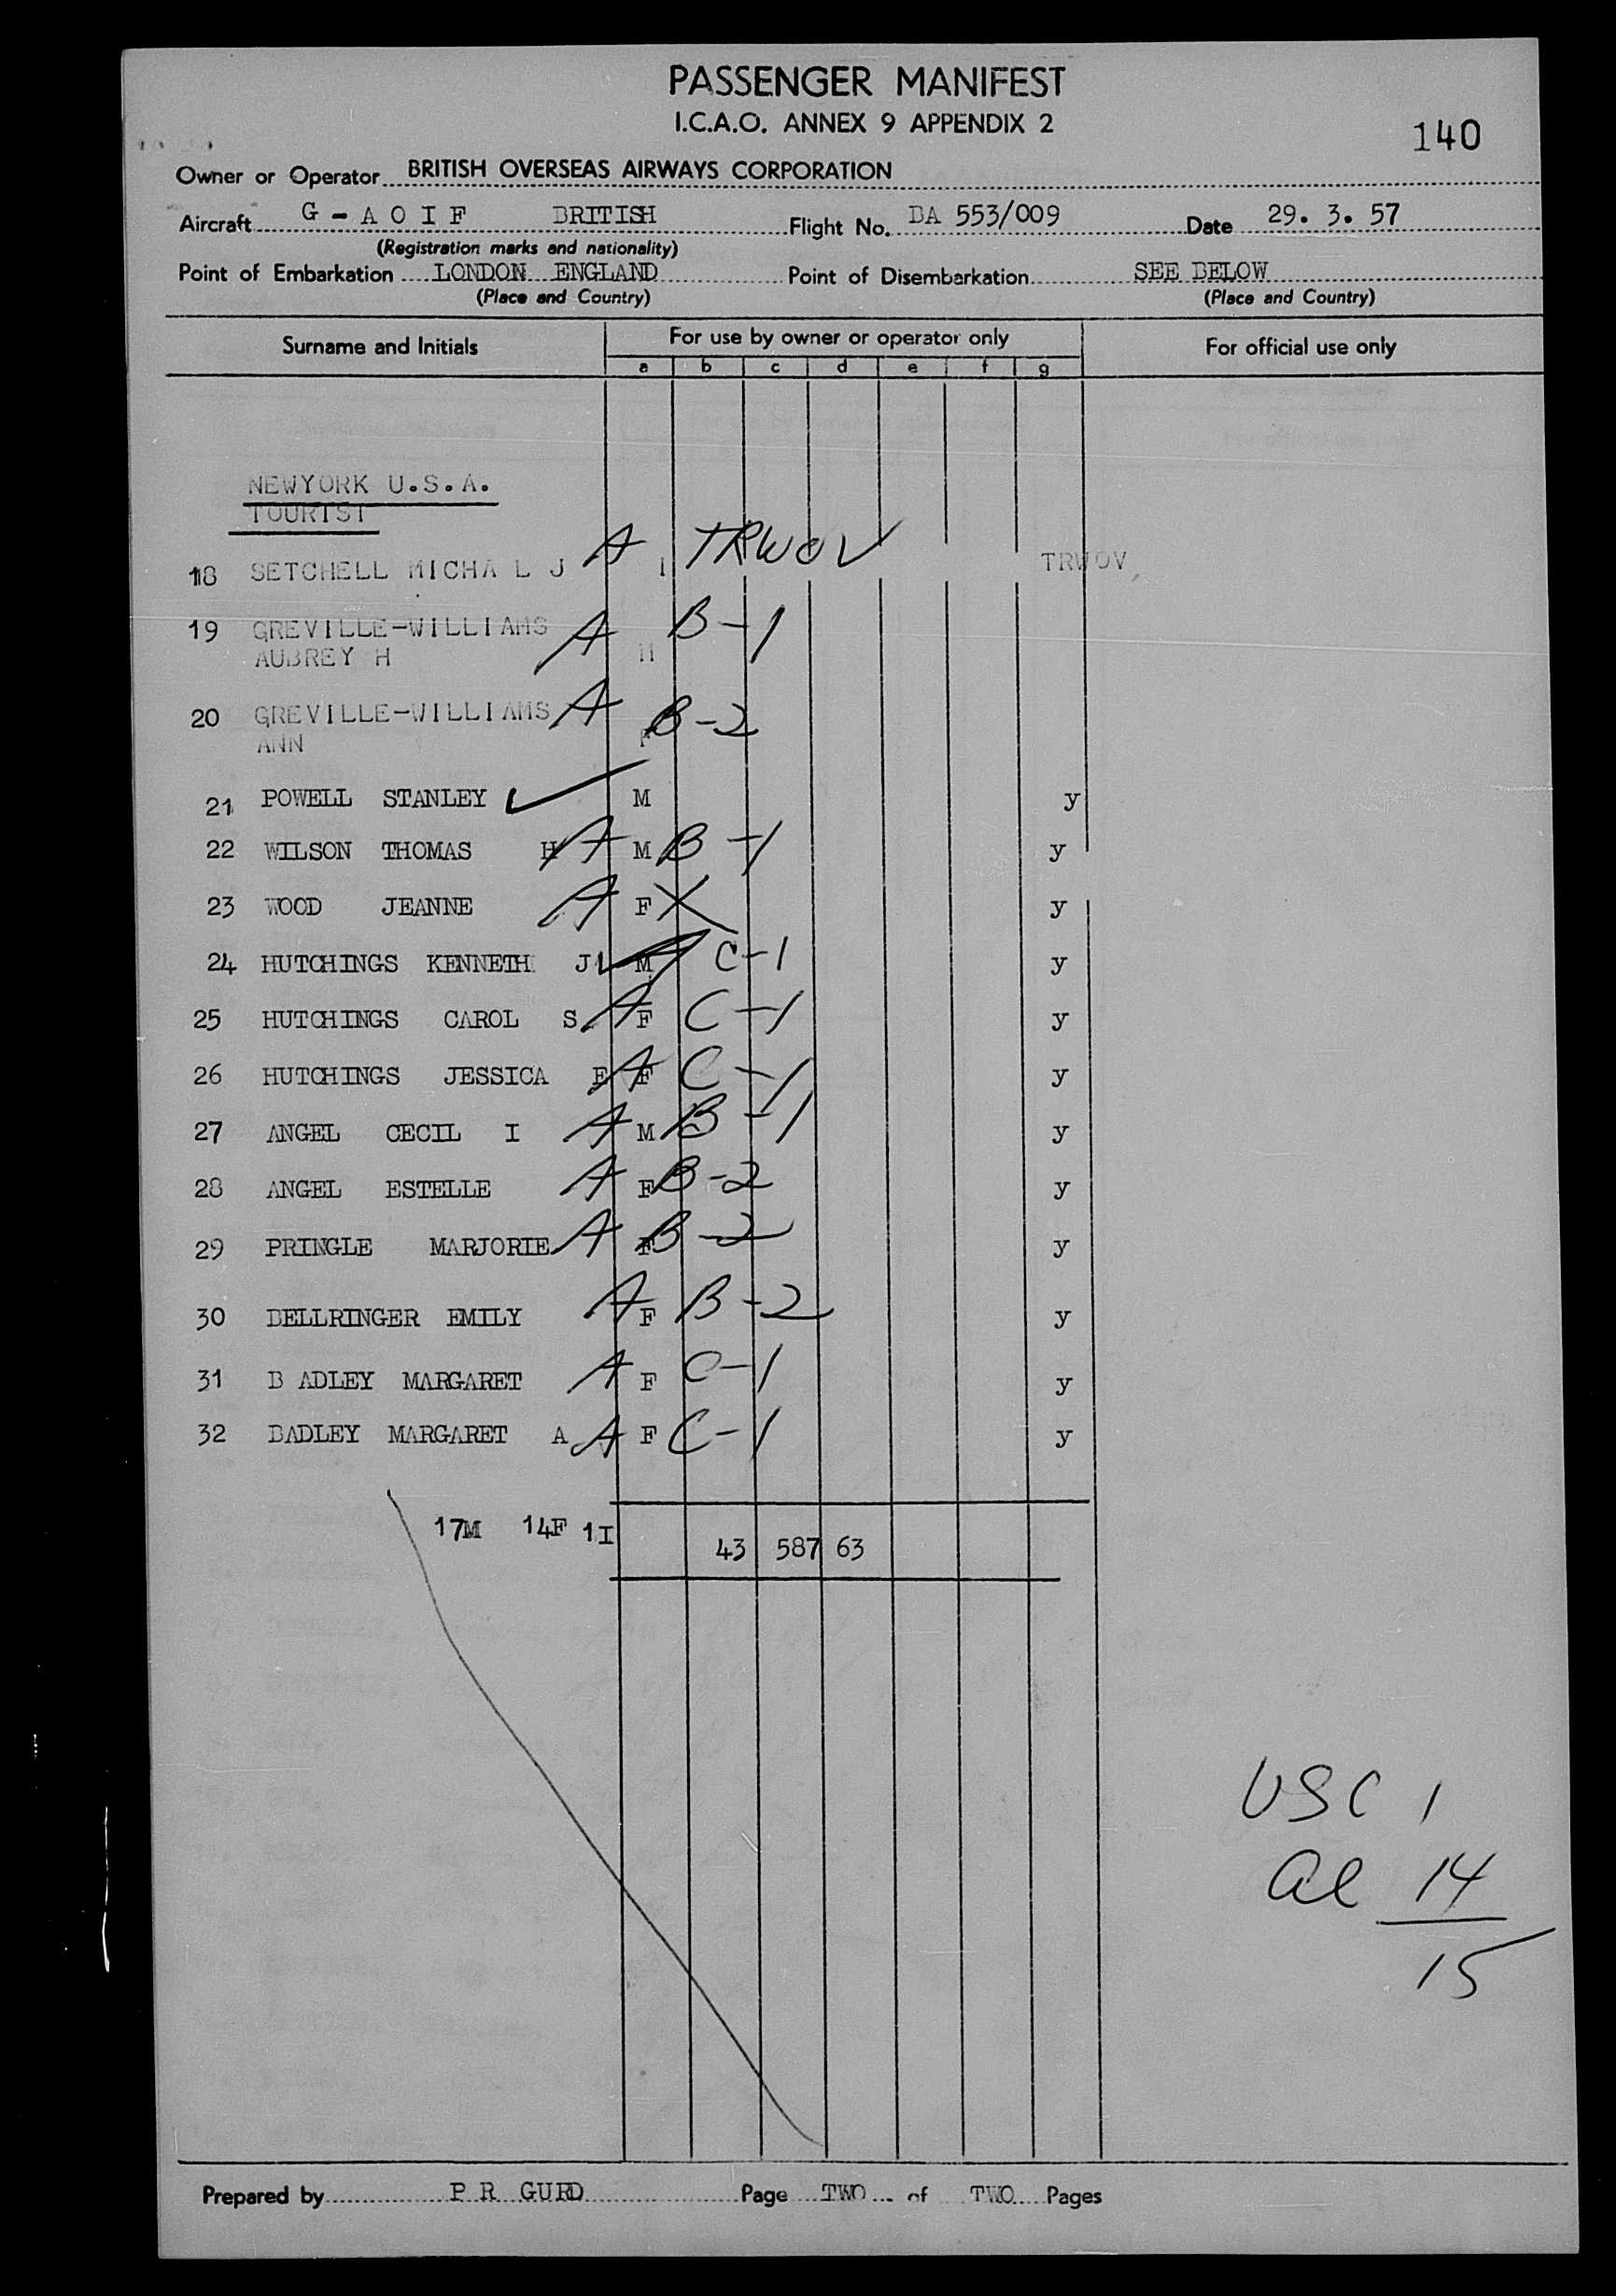 PASSENGER MANIFEST
I.C.A.O. ANNEX 9 APPENDIX 2
140
Owner or Operator BRITISH OVERSEAS AIRWAYS CORPORATION
Aircraft G - A O I F BRITISH Flight No. BA 553/009 Date 29. 3. 57
(Registration marks and nationality)
Point of Embarkation LONDON ENGLAND Point of Disembarkation SEE BELOW
(Place and Country) (Place and Country)
Surname and Initials For use by owner or operator only For official use only
a b c d e f g
NEWYORK U.S.A.
TOURIST
18 SETCHELL MICHA L J A I TRWOV TRWOV
19 GREVILLE-WILLIAMS A B-1
AUBREY H M
20 GREVILLE-WILLIAMS A B-2
ANN F
21 POWELL STANLEY ✓ M y
22 WILSON THOMAS H A M B-1 y
23 WOOD JEANNE A F X y
24 HUTCHINGS KENNETH J A M C-1 y
25 HUTCHINGS CAROL S A F C-1 y
26 HUTCHINGS JESSICA E A F C-1 y
27 ANGEL CECIL I A M B-1 y
28 ANGEL ESTELLE A F B-2 y
29 PRINGLE MARJORIE A F B-2 y
30 BELLRINGER EMILY A F B-2 y
31 B ADLEY MARGARET A F C-1 y
32 BADLEY MARGARET A A F C-1 y
17M 14F 1I
43 587 63
USC 1
al 14
15
Prepared by P R GURD Page TWO of TWO Pages